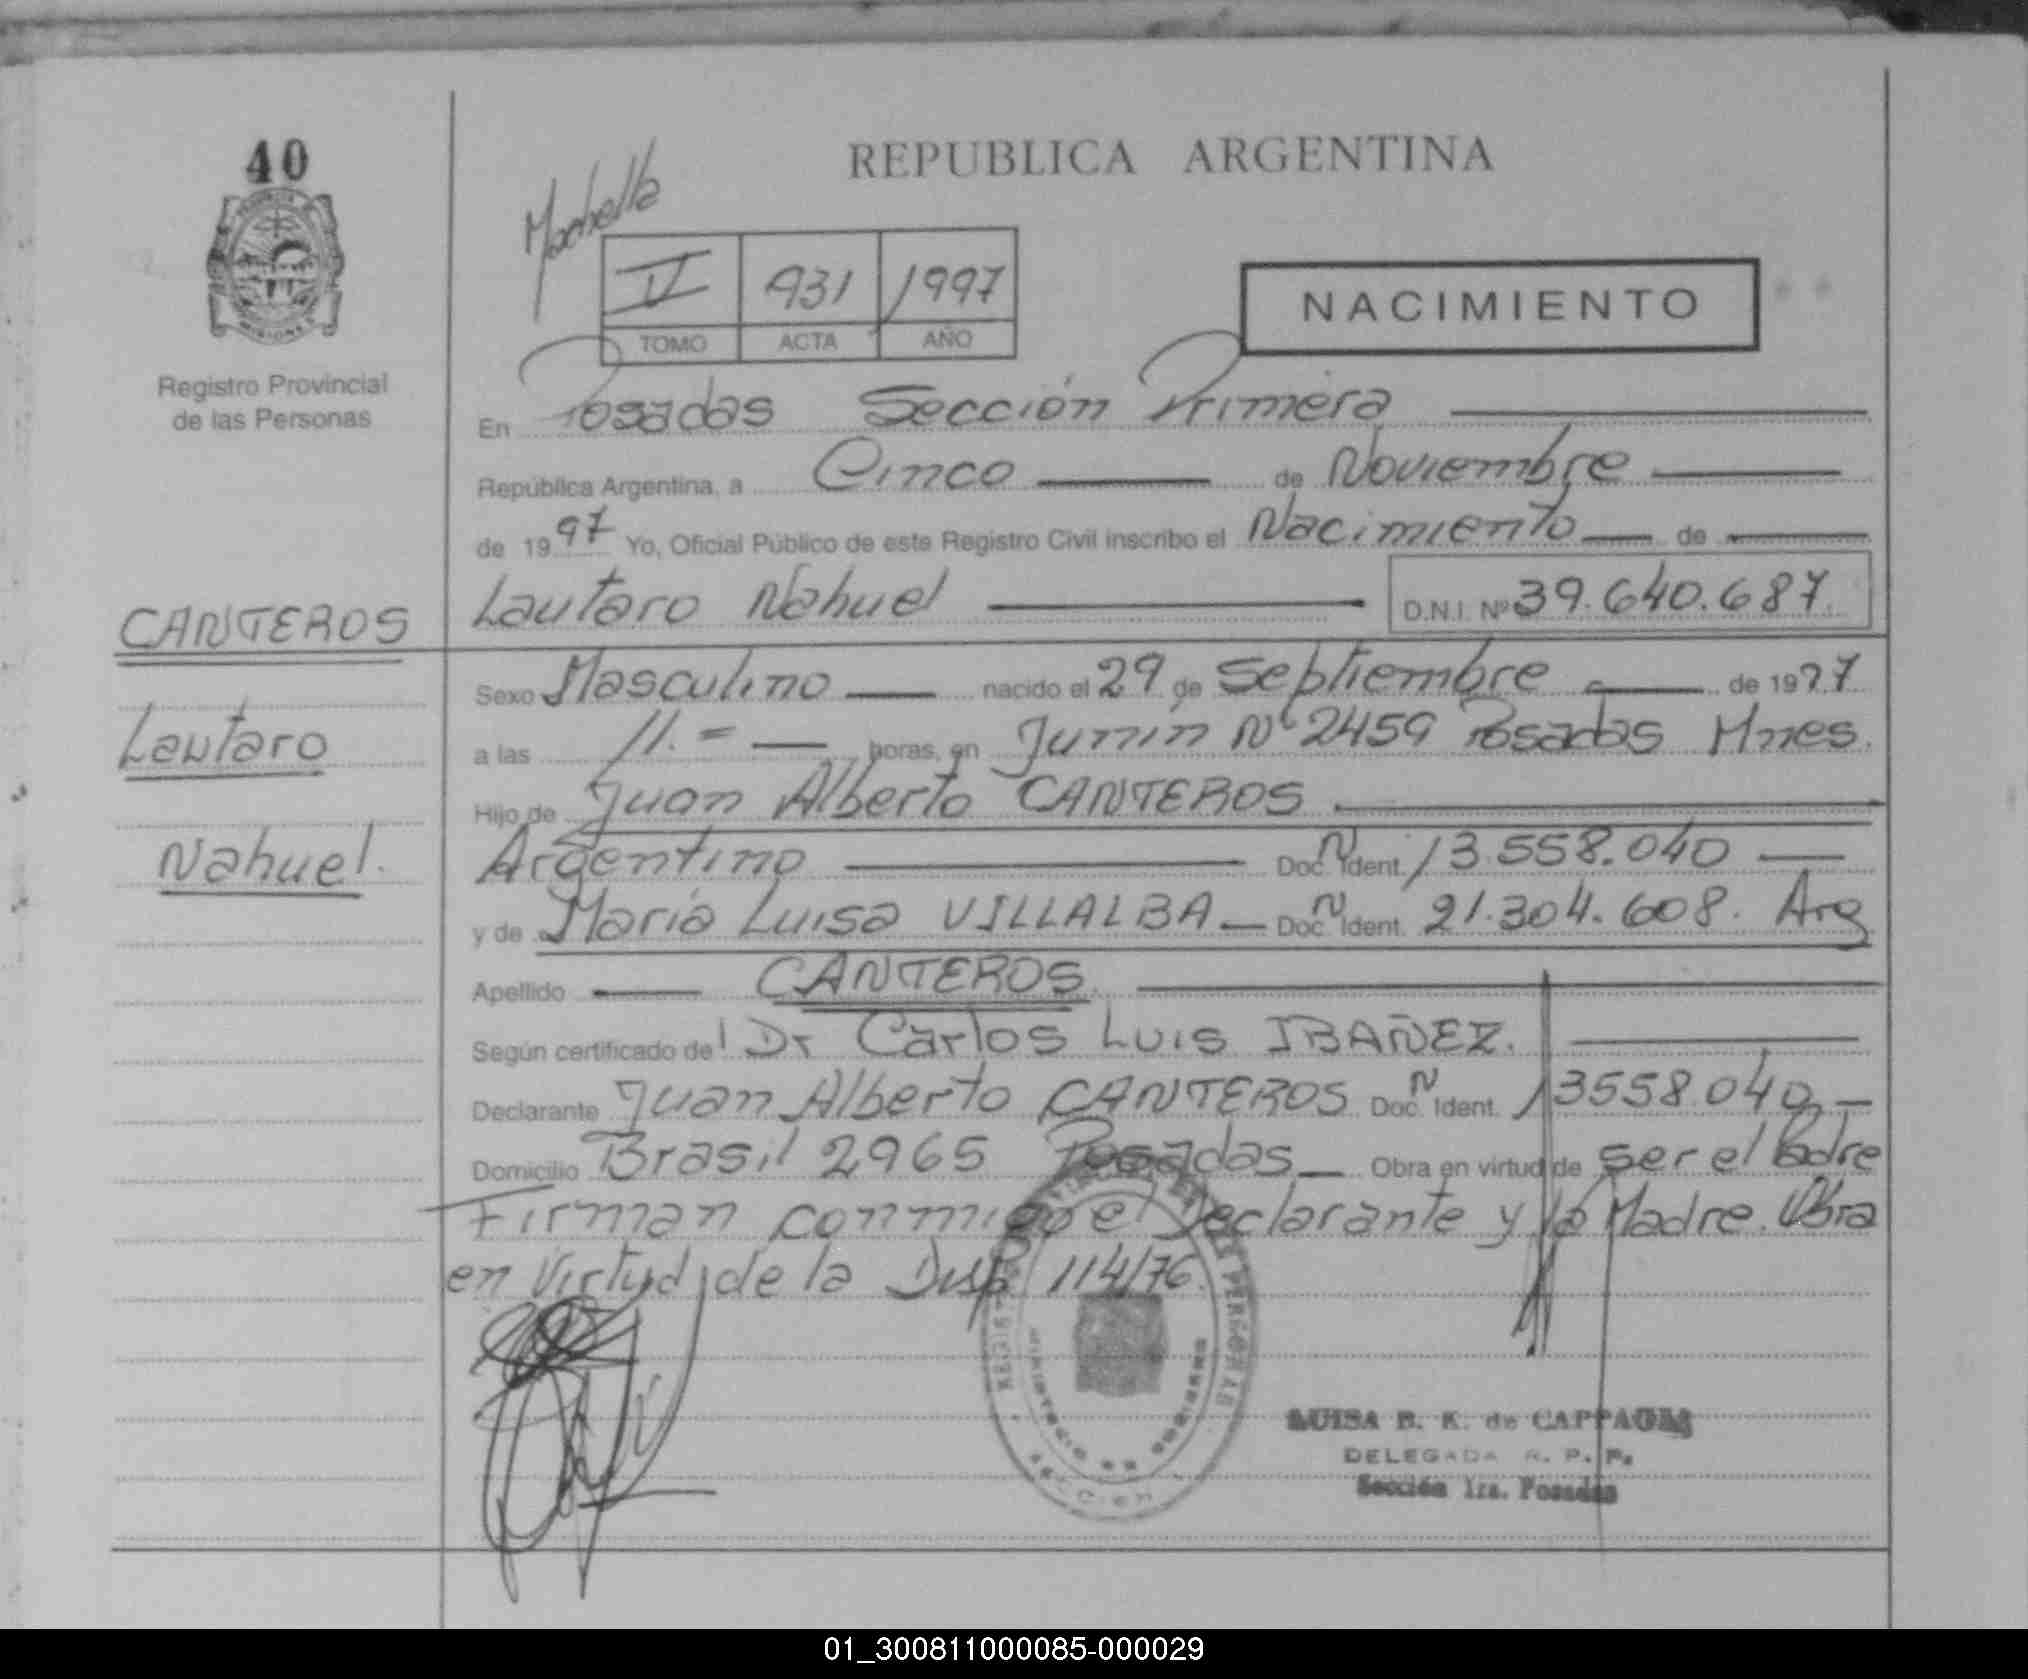 40
MISIONES
Registro Provincial
de las Personas
REPUBLICA ARGENTINA
V 931 1997
TOMO ACTA AÑO
NACIMIENTO
En Posadas Sección Primera
República Argentina, a Cinco de Noviembre
de 1997 Yo, Oficial Público de este Registro Civil inscribo el Nacimiento de
Lautaro Nahuel D.N.I. Nº 39.640.687
CANTEROS
Lautaro
Nahuel.
Sexo Masculino nacido el 29 de Septiembre de 1997
a las 11.= horas, en Junín Nº 2459 Posadas Mnes.
Hijo de Juan Alberto CANTEROS
Argentino Doc. N Ident. 13.558.040
y de María Luisa VILLALBA Doc. N Ident. 21.304.608. Arg
Apellido CANTEROS.
Según certificado del Dr Carlos Luis IBAÑEZ.
Declarante Juan Alberto CANTEROS Doc. N Ident. 13558.040
Domicilio Brasil 2965 Posadas Obra en virtud de ser el Padre
Firman conmigo el Declarante y la Madre. Obra
en Virtud de la Disp 114/76.
LUISA B. K. de
DELEGADA R. P. P.
Sección 1ra. Posadas
01_300811000085-000029